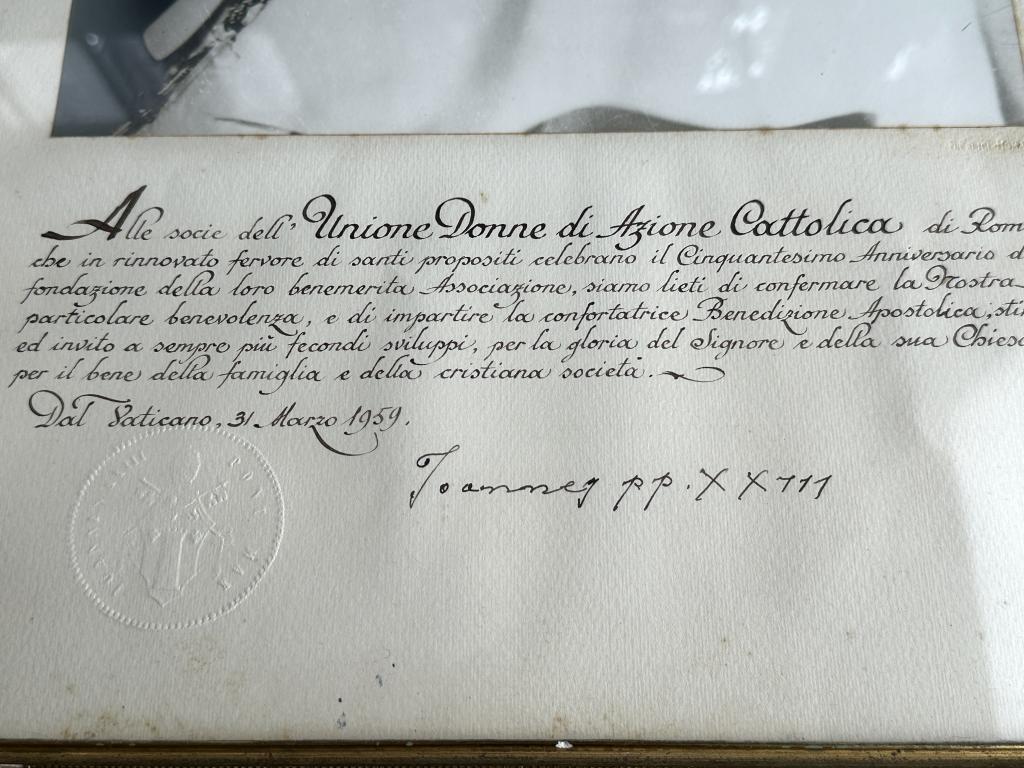 Alle socie dell' Unione Donne di Azione Cattolica di Rom
che in rinnovato fervore di santi propositi celebrano il Cinquantesimo Anniversario d
fondazione della loro benemerita Associazione, siamo lieti di confermare la Nostra
particolare benevolenza, e di impartire la confortatrice Benedizione Apostolica, sti
ed invito a sempre più fecondi sviluppi, per la gloria del Signore e della sua Chies
per il bene della famiglia e della cristiana società.
Dal Vaticano, 31 Marzo 1959.
Ioannes pp. XXIII